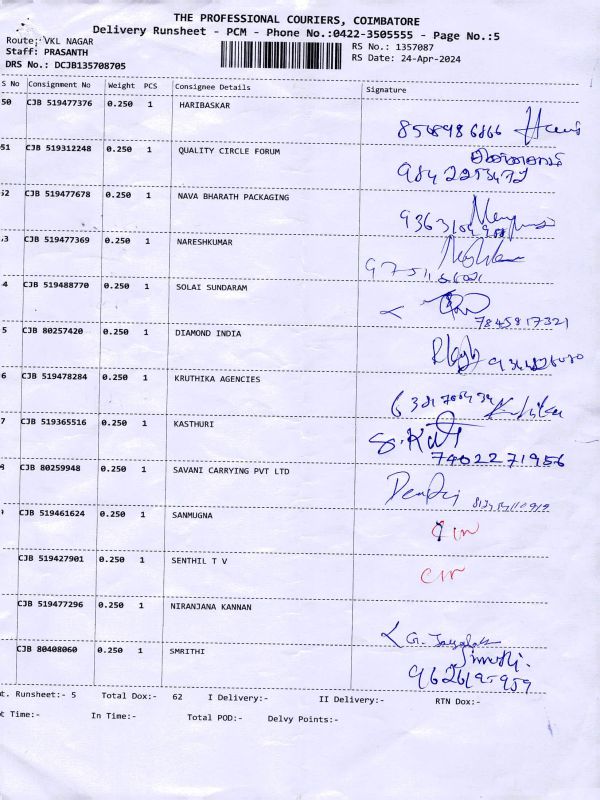 THE PROFESSIONAL COURIERS, COIMBATORE
Delivery Runsheet - PCM - Phone No.:0422-3505555 - Page No.:5
Route: VKL NAGAR
RS No.: 1357087
Staff: PRASANTH
RS Date: 24-Apr-2024
DRS No.: DCJB135708705
S No Consignment No Weight PCS Consignee Details Signature
50 CJB 519477376 0.250 1 HARIBASKAR
51 CJB 519312248 0.250 1 QUALITY CIRCLE FORUM
52 CJB 519477678 0.250 1 NAVA BHARATH PACKAGING
53 CJB 519477369 0.250 1 NARESHKUMAR
4 CJB 519488770 0.250 1 SOLAI SUNDARAM
7845817321
5 CJB 80257420 0.250 1 DIAMOND INDIA
6 CJB 519478284 0.250 1 KRUTHIKA AGENCIES
7 CJB 519365516 0.250 1 KASTHURI
7402271956
8 CJB 80259948 0.250 1 SAVANI CARRYING PVT LTD
CJB 519461624 0.250 1 SANMUGNA
CJB 519427901 0.250 1 SENTHIL T V
CJB 519477296 0.250 1 NIRANJANA KANNAN
CJB 80408060 0.250 1 SMRITHI
9626195959
t. Runsheet:- 5 Total Dox:- 62 I Delivery:- II Delivery:- RTN Dox:-
t Time:- In Time:- Total POD:- Delvy Points:-